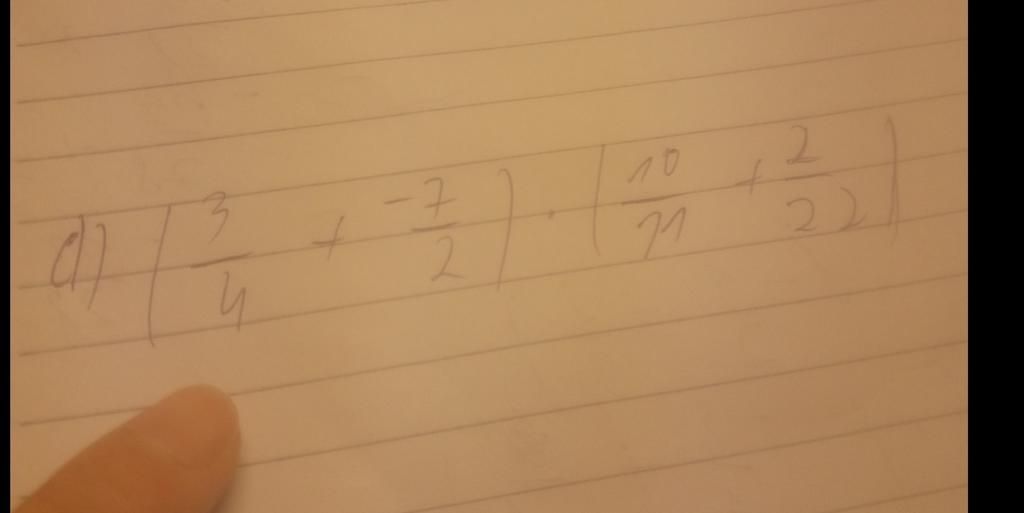 d) (3/4 + -7/2) · (10/11 + 2/22)